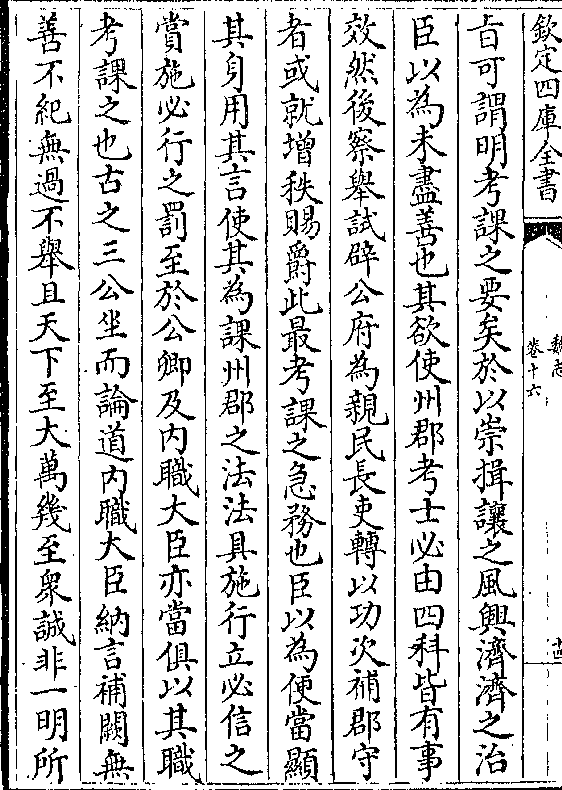 欽定四庫全書
魏志
卷十六
十四
㫖可謂明考課之要矣於以崇揖讓之風興濟濟之治
臣以為未盡善也其欲使州郡考士必由四科皆有事
效然後察舉試辟公府為親民長吏轉以功次補郡守
者或就增秩賜爵此最考課之急務也臣以為便當顯
其身用其言使其為課州郡之法法具施行立必信之
賞施必行之罰至於公卿及内職大臣亦當俱以其職
考課之也古之三公坐而論道内職大臣納言補闕無
善不紀無過不舉且天下至大萬幾至衆誠非一明所